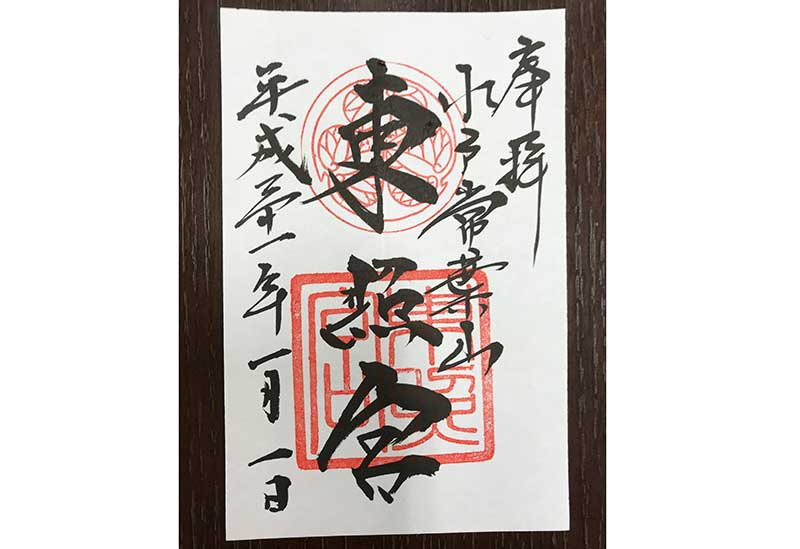 奉拝
水戸常葉山
東照宮
平成三十一年一月一日